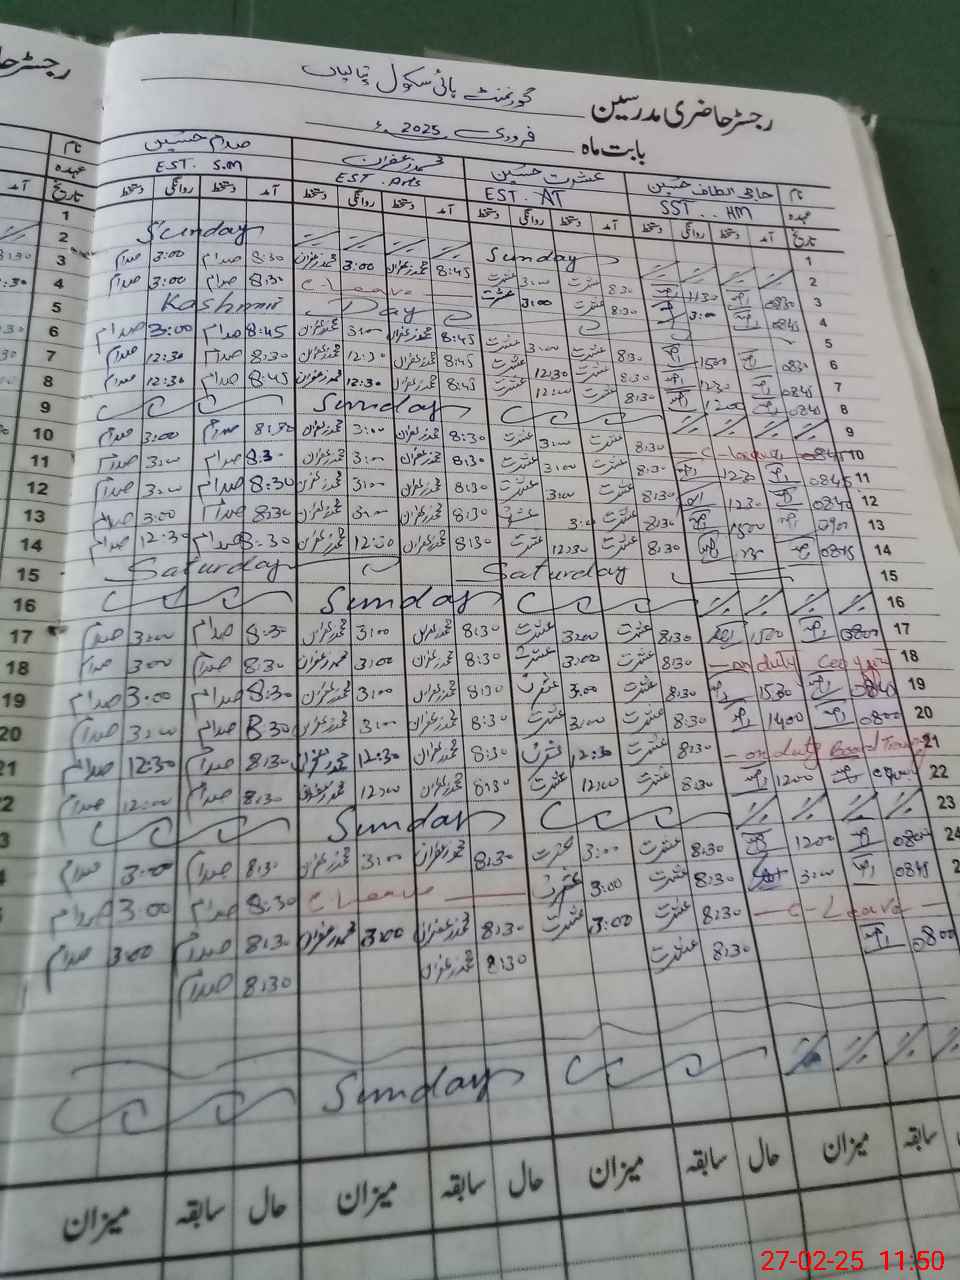 رجسٹر حاضری مدرسین گورنمنٹ ہائی سکول
بابت ماہ فروری 2025ء
نام حاجی الطاف حسین عشرت حسین محمد زعفران صدام حسین نام
عہدہ SST . . HM EST . AT EST . Arts EST . S.M عہدہ
تاریخ آمد دستخط روانگی دستخط آمد دستخط روانگی دستخط آمد دستخط روانگی دستخط آمد دستخط روانگی دستخط تاریخ
1 1
2 Sunday Sunday 2
3 0830 1130 8:30 عشرت 3:00 عشرت 8:45 محمد زعفران 3:00 محمد زعفران 8:30 صدام 3:00 صدام 3
4 0845 3:00 8:30 عشرت 3:00 عشرت C Leave 8:30 صدام 3:00 صدام 4
5 Kashmir Day 5
6 0830 1500 8:30 عشرت 3:00 عشرت 8:45 محمد زعفران 3:00 محمد زعفران 8:45 صدام 3:00 صدام 6
7 0845 1230 8:30 عشرت 12:30 عشرت 8:45 محمد زعفران 12:30 محمد زعفران 8:30 صدام 12:30 صدام 7
8 0845 1200 8:30 عشرت 12:00 عشرت 8:45 محمد زعفران 12:30 محمد زعفران 8:45 صدام 12:30 صدام 8
9 Sunday 9
10 0845 8:30 عشرت 3:00 عشرت 8:30 محمد زعفران 3:00 محمد زعفران 8:30 صدام 3:00 صدام 10
11 0845 1230 8:30 عشرت 3:00 عشرت 8:30 محمد زعفران 3:00 محمد زعفران 8:30 صدام 3:00 صدام 11
12 0840 1230 8:30 عشرت 3:00 عشرت 8:30 محمد زعفران 3:00 محمد زعفران 8:30 صدام 3:00 صدام 12
13 0900 1500 8:30 عشرت 3:00 عشرت 8:30 محمد زعفران 3:00 محمد زعفران 8:30 صدام 3:00 صدام 13
14 0845 8:30 عشرت 12:30 عشرت 8:30 محمد زعفران 12:30 محمد زعفران 8:30 صدام 12:30 صدام 14
15 Saturday Saturday 15
16 Sunday 16
17 0800 1500 8:30 عشرت 3:00 عشرت 8:30 محمد زعفران 3:00 محمد زعفران 8:30 صدام 3:00 صدام 17
18 on duty 8:30 عشرت 3:00 عشرت 8:30 محمد زعفران 3:00 محمد زعفران 8:30 صدام 3:00 صدام 18
19 0840 1530 8:30 عشرت 3:00 عشرت 8:30 محمد زعفران 3:00 محمد زعفران 8:30 صدام 3:00 صدام 19
20 0800 1400 8:30 عشرت 3:00 عشرت 8:30 محمد زعفران 3:00 محمد زعفران 8:30 صدام 3:00 صدام 20
21 on duty Board 8:30 عشرت 12:30 عشرت 8:30 محمد زعفران 12:30 محمد زعفران 8:30 صدام 12:30 صدام 21
22 1200 8:30 عشرت 12:00 عشرت 8:30 محمد زعفران 12:00 محمد زعفران 8:30 صدام 12:00 صدام 22
23 Sunday 3
24 0800 1200 8:30 عشرت 3:00 عشرت 8:30 محمد زعفران 3:00 محمد زعفران 8:30 صدام 3:00 صدام
2 0845 3:00 8:30 عشرت 3:00 عشرت C Leave 8:30 صدام 3:00 صدام
C-Leave 8:30 عشرت 3:00 عشرت 8:30 محمد زعفران 3:00 محمد زعفران 8:30 صدام 3:00 صدام
0800 8:30 عشرت 8:30 محمد زعفران 8:30 صدام
Sunday
سابقہ میزان حال سابقہ میزان حال سابقہ میزان حال سابقہ میزان
27-02-25 11:50